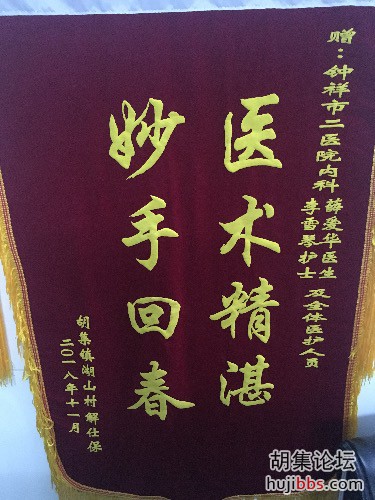 赠：钟祥市二医院内科薛爱华医生
李雪琴护士及全体医护人员
医术精湛
妙手回春
胡集镇湖山村解仕保
二〇一八年十一月
胡集论坛
hujibbs.com